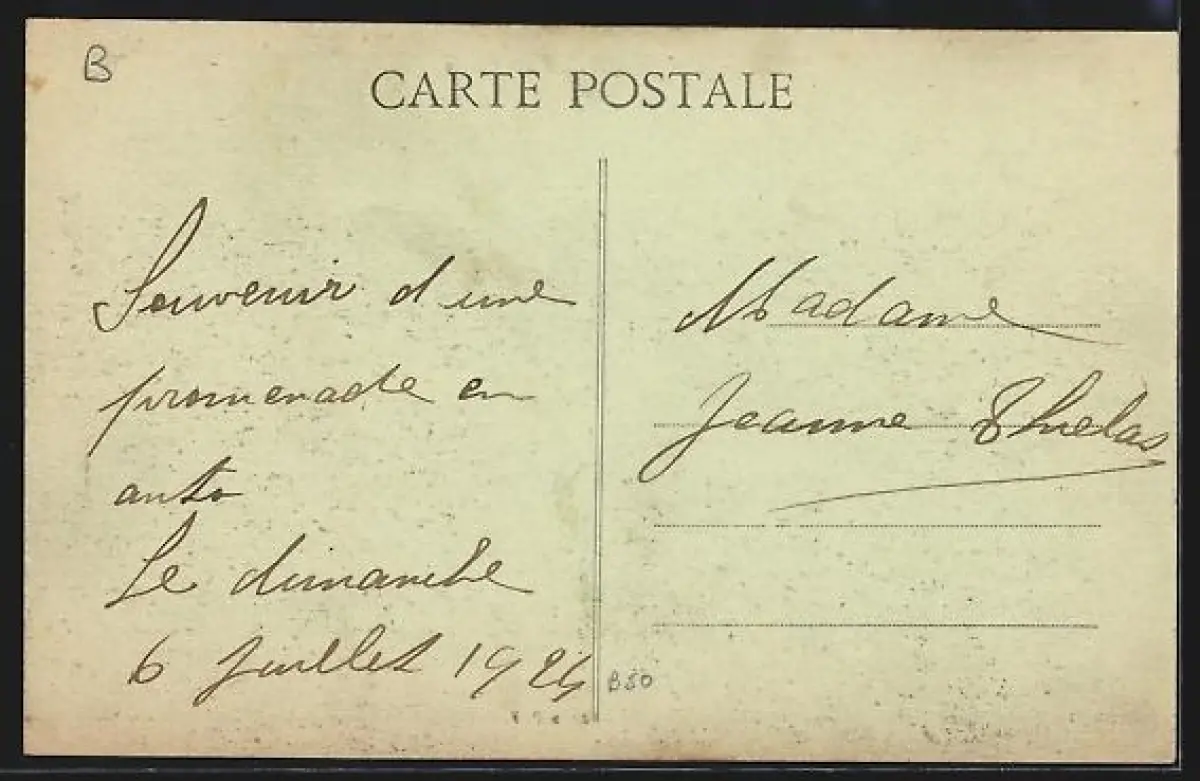 B
CARTE POSTALE
Souvenir d'une
promenade en
auto
Le dimanche
6 Juillet 1924
Madame
Jeanne Thuelas
B50